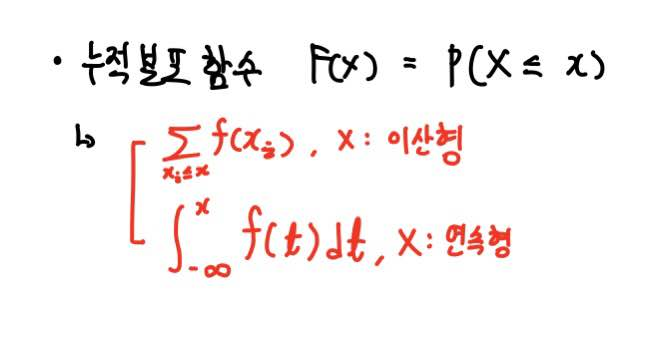 • 누적분포 함수 F(x) = P(X ≤ x)
↳ [ ∑_{x_i ≤ x} f(x_i), X : 이산형
∫_{-∞}^{x} f(t)dt, X : 연속형